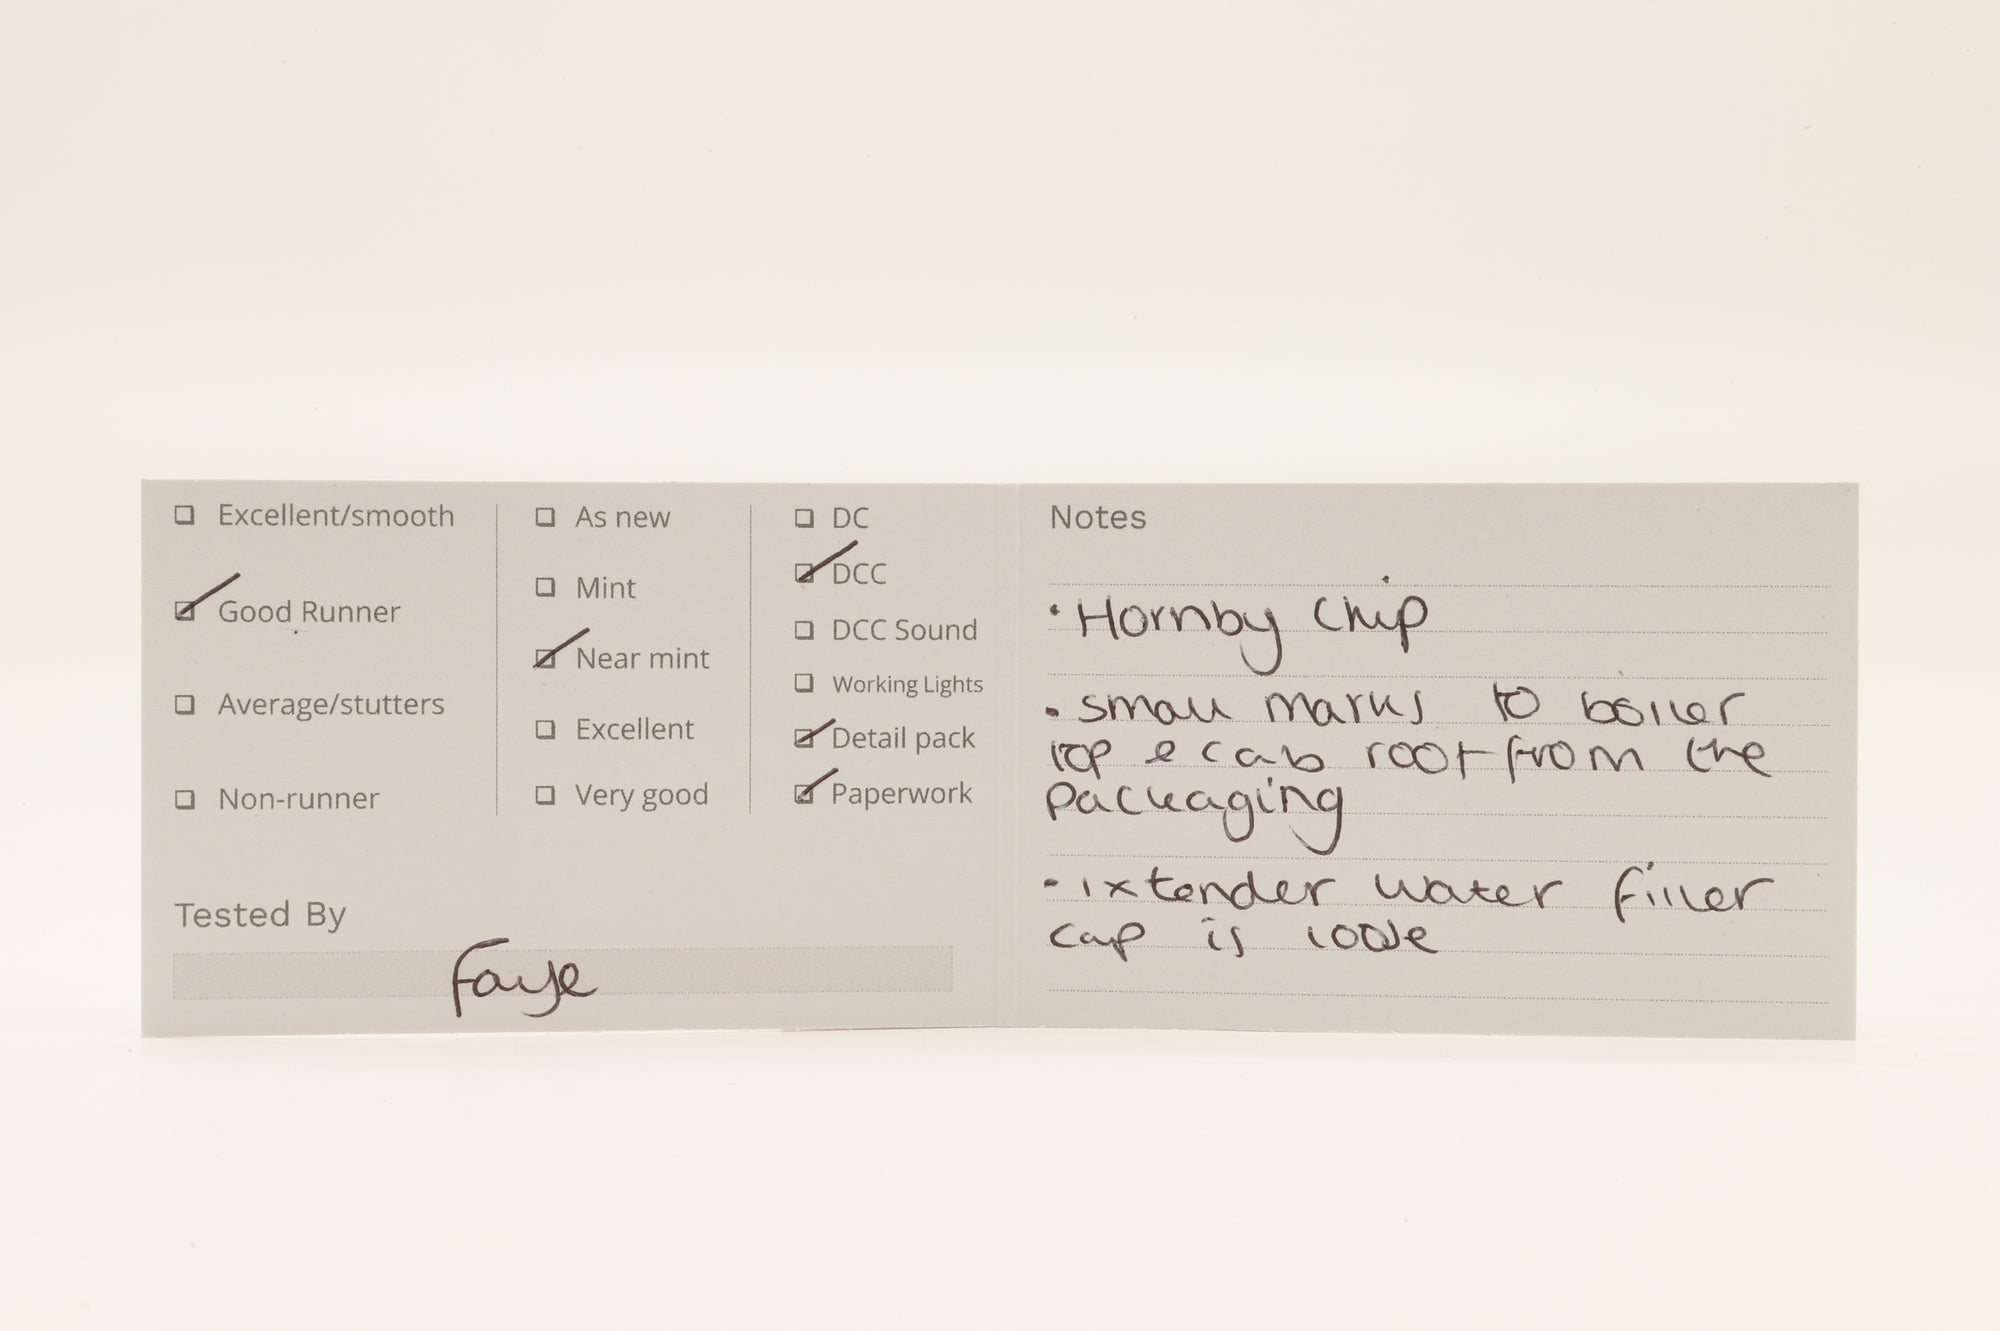 Excellent/smooth
Good Runner
Average/stutters
Non-runner
As new
Mint
Near mint
Excellent
Very good
DC
DCC
DCC Sound
Working Lights
Detail pack
Paperwork
Tested By
Faye
Notes
• Hornby Chip
• small marks to boiler
top & cab roof from the
packaging
• 1x tender water filler
cap is loose